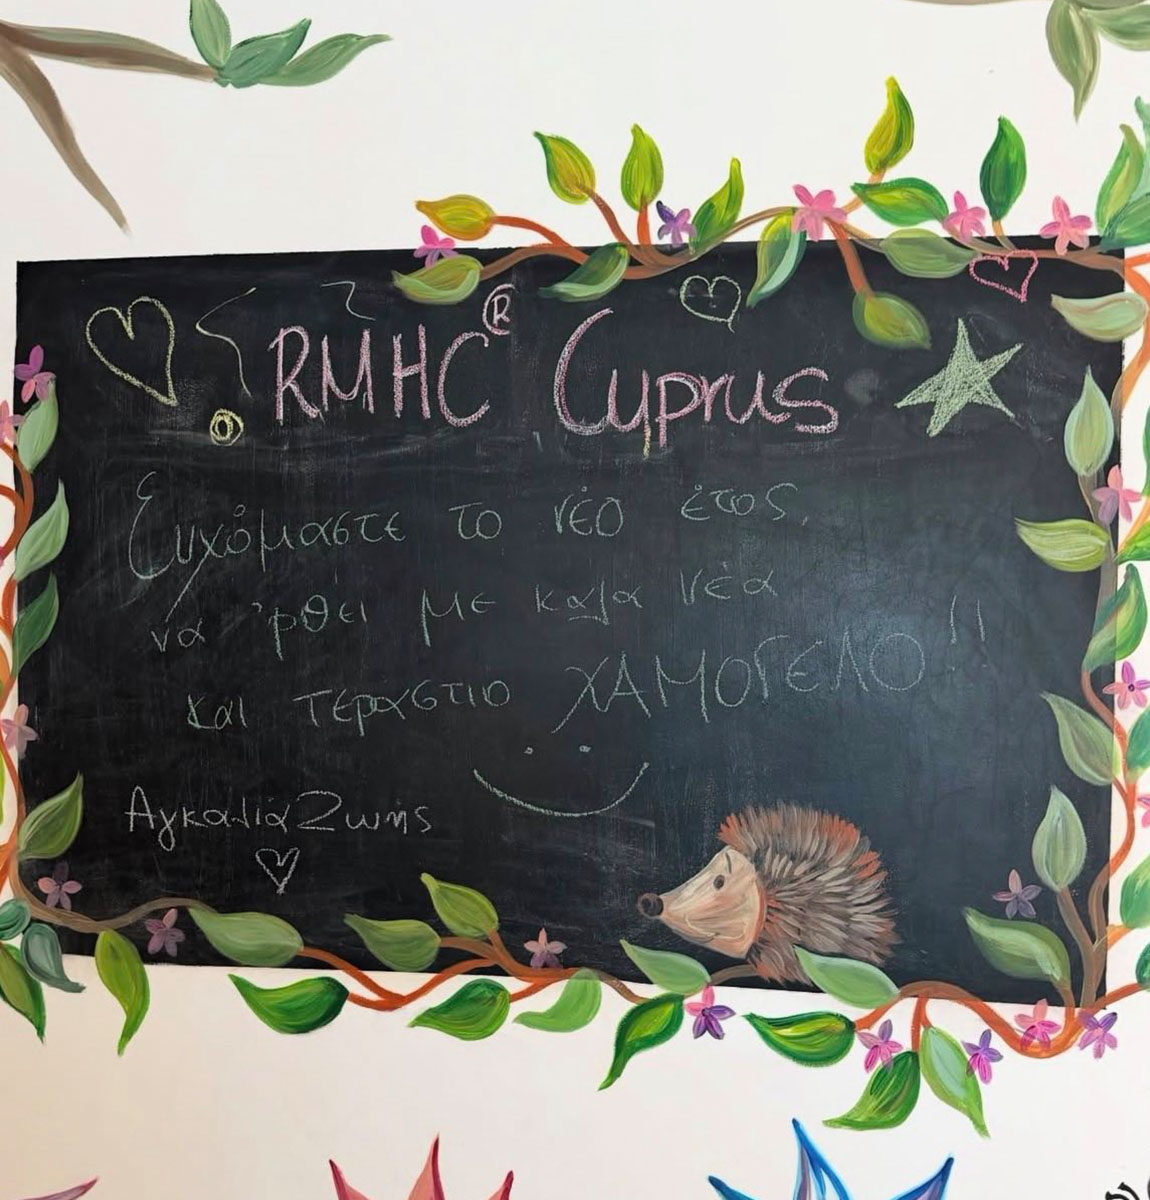 RMHC® Cyprus
Ευχόμαστε το νέο έτος
να 'ρθει με καλα νέα
και τεράστιο ΧΑΜΟΓΕΛΟ!!
Αγκαλιά Ζωής